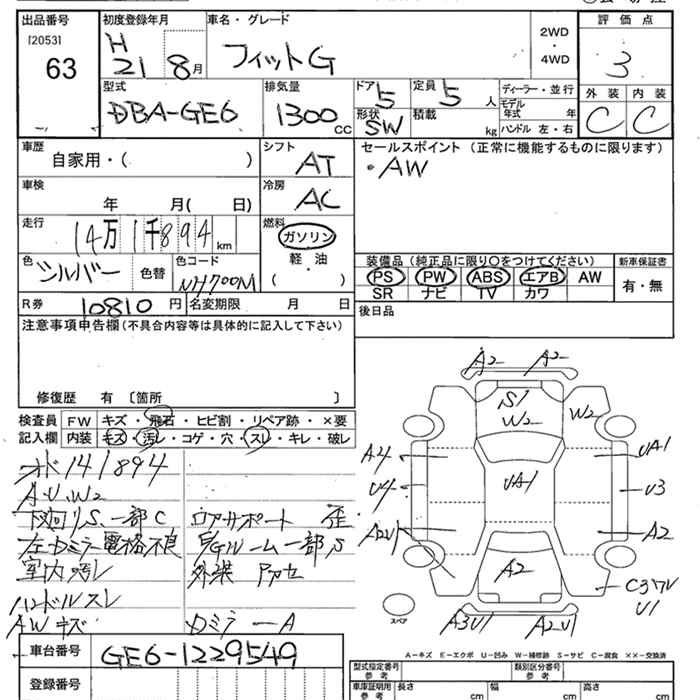 出品番号 初度登録年月 車名・グレード 2WD・4WD 評価点
[2053]
63 H 21 8月 フィットG 3
外装 内装
C C
型式 排気量 ドア 5 定員 5人 ディーラー・並行
DBA-GE6 1300cc 形状 SW 積載 kg モデル年式 年
ハンドル 左・右
車歴 自家用・( ) シフト AT セールスポイント(正常に機能するものに限ります)
・AW
車検 年 月( 日) 冷房 AC
走行 14万1千894km 燃料 ガソリン
軽・油
( )
色 シルバー 色替 色コード NH700M
装備品(純正品に限り○をつけてください) 新車保証書
PS PW ABS エアB AW 有・無
SR ナビ TV カワ
R券 10810円 名変期限 月 日 後日品
注意事項申告欄(不具合内容等は具体的に記入して下さい)
修復歴 有 〔箇所 〕
検査員 FW キズ・飛石・ヒビ割・リペア跡・×要
記入欄 内装 キズ・汚レ・コゲ・穴・スレ・キレ・破レ
メド141894
A.U.W2
下廻りS、一部C ロアサポート 歪
左ドアミラー電格不良 E/Gルーム一部S
室内汚レ
ハンドルスレ
AWキズ ロミラーA
A2 A2
S1
W2 W2
A4 UA1 UA1
U4 U3
A2U1 A2
A2
C3ワレ
U1
スペア A3U1 A2U1
A-キズ E-エクボ U-凹み W-補修跡 S-サビ C-腐食 ××-交換済
車台番号 GE6-1229549
登録番号
型式指定番号 参考 類別区分番号 参考
車庫証明用 参考 長さ cm 幅 cm 高さ cm